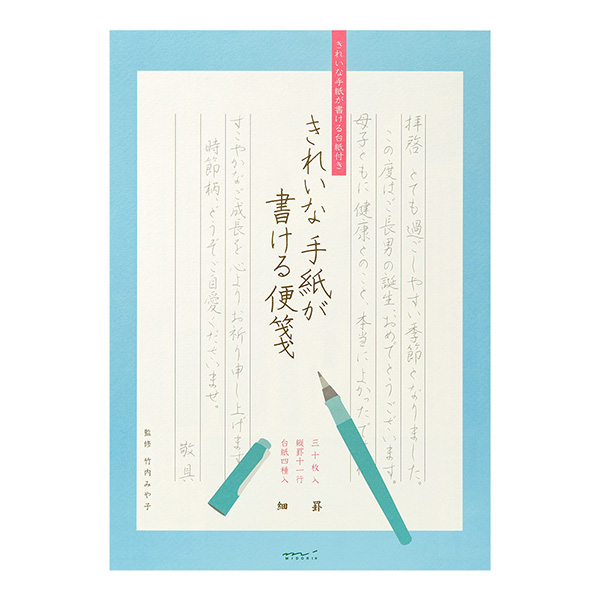 きれいな手紙が書ける台紙付き
拝啓 とても過ごしやすい季節となりました。
この度はご長男の誕生、おめでとうございます。
母子ともに健康とのこと、本当によかったで
きれいな手紙が
書ける便箋
すこやかなご成長を心よりお祈り申し上げます
時節柄、どうぞご自愛くださいませ。
敬具
三十枚入
縦罫十一行
台紙四種入
細 罫
監修 竹内みや子
MIDORI